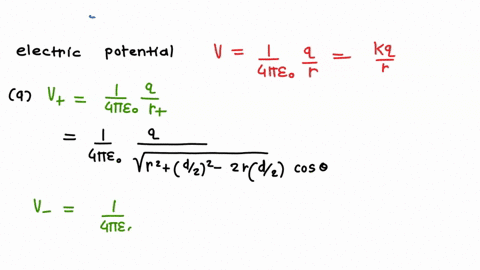 electric potential V = 1/4πε₀ q/r = kq/r
(a) V₊ = 1/4πε₀ q/r₊
= 1/4πε₀ q/√(r²+(d/2)²- 2r(d/2)) cos θ
V₋ = 1/4πε